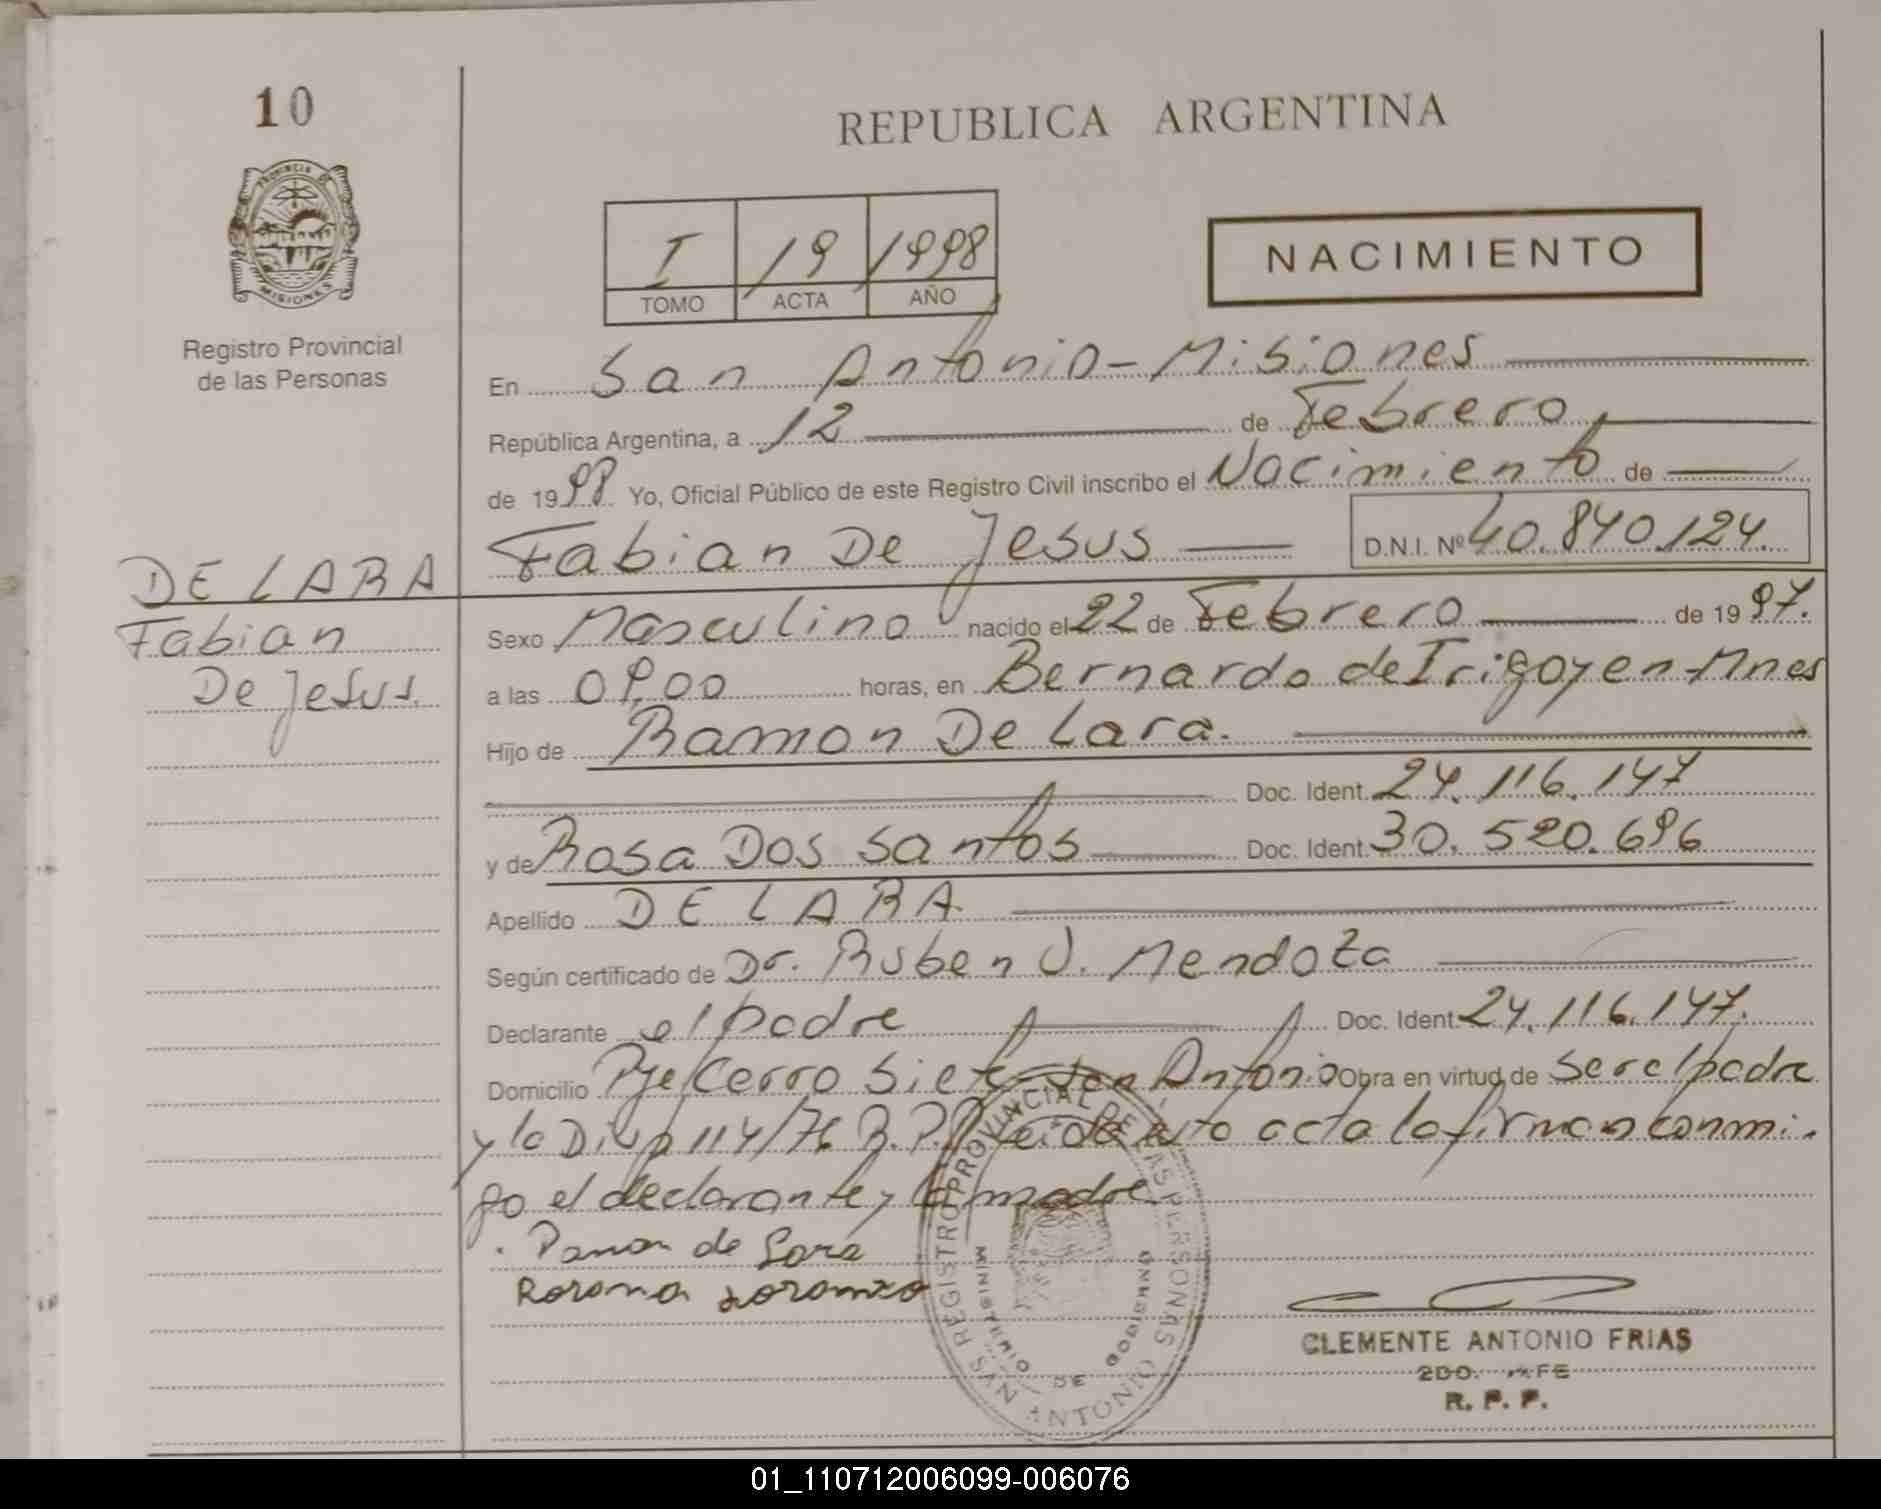 10
PROVINCIA DE
MISIONES
Registro Provincial
de las Personas
REPUBLICA ARGENTINA
I 19 1998
TOMO ACTA AÑO
NACIMIENTO
En San Antonio - Misiones
República Argentina, a 12 de Febrero
de 1998 Yo, Oficial Público de este Registro Civil inscribo el Nacimiento de
Fabian De Jesus D.N.I. Nº 40.840.124.
DE LARA
Fabian
De Jesus.
Sexo Masculino nacido el 22 de Febrero de 1997.
a las 09,00 horas, en Bernardo de Irigoyen - Mnes
Hijo de Ramon De Lara.
Doc. Ident. 24.116.147
y de Rosa Dos Santos Doc. Ident. 30.520.696
Apellido DE LARA
Según certificado de Dr. Ruben J. Mendoza
Declarante el padre Doc. Ident. 24.116.147.
Domicilio Pje Cerro Siete - San Antonio Obra en virtud de ser el padre
y la Disp 114/76 R.P.P. Leida esta acta la firman conmi-
go el declarante y la madre
de Lara
REGISTRO PROVINCIAL DE LAS PERSONAS
MINISTERIO DE GOBIERNO
SAN ANTONIO
CLEMENTE ANTONIO FRIAS
2DO. JEFE
R. P. P.
01_110712006099-006076